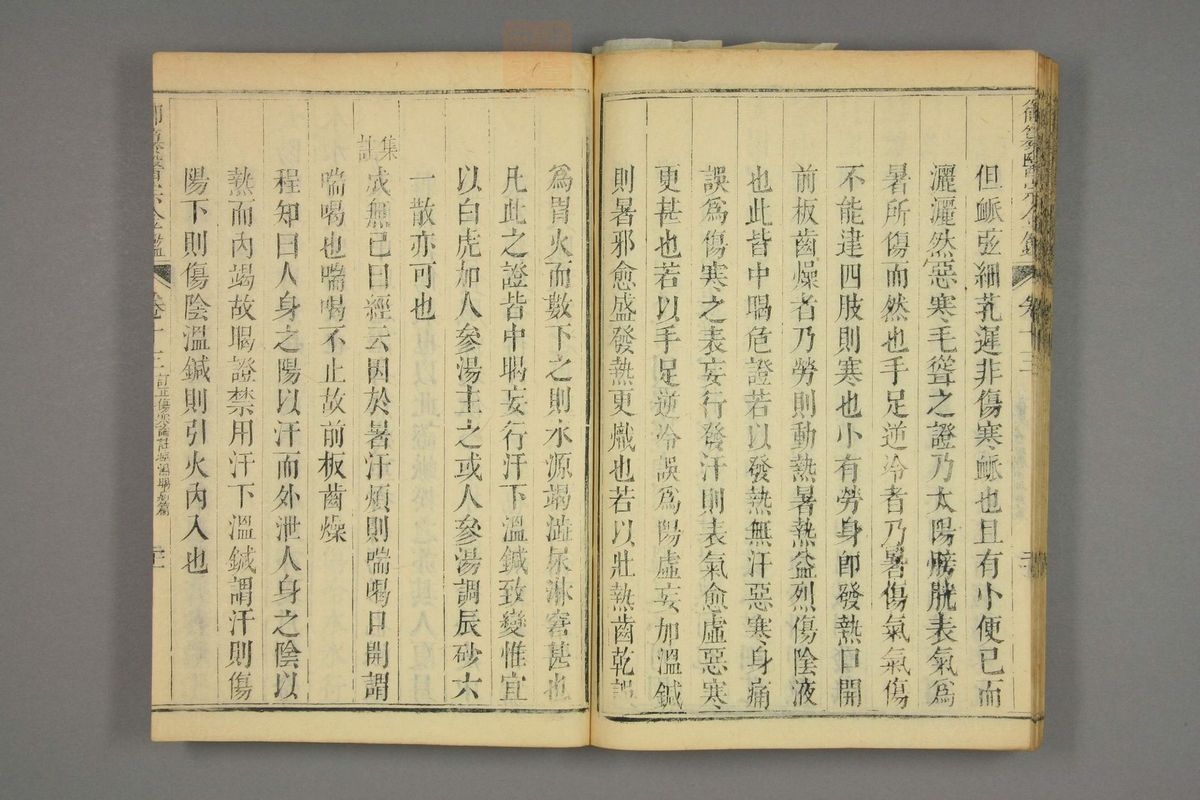 御纂醫宗金鑑
卷十三
但脈弦細芤遲非傷寒脈也且有小便已而
灑灑然惡寒毛聳之證乃太陽膀胱表氣為
暑所傷而然也手足逆冷者乃暑傷氣氣傷
不能達四肢則寒也小有勞身卽發熱口開
前板齒燥者乃勞則動熱暑熱益烈傷陰液
也此皆中暍危證若以發熱無汗惡寒身痛
誤為傷寒之表妄行發汗則表氣愈虛惡寒
更甚也若以手足逆冷誤為陽虛妄加溫鍼
則暑邪愈盛發熱更熾也若以壯熱齒乾誤
為胃火而數下之則水源竭澁尿淋窘甚也
凡此之證皆中暍妄行汗下溫鍼致變惟宜
以白虎加人參湯主之或人參湯調辰砂六
一散亦可也
集註成無已曰經云因於暑汗煩則喘喝口開謂
喘喝也喘喝不止故前板齒燥
程知曰人身之陽以汗而外泄人身之陰以
熱而內竭故暍證禁用汗下溫鍼謂汗則傷
陽下則傷陰溫鍼則引火內入也
御纂醫宗金鑑
卷十三